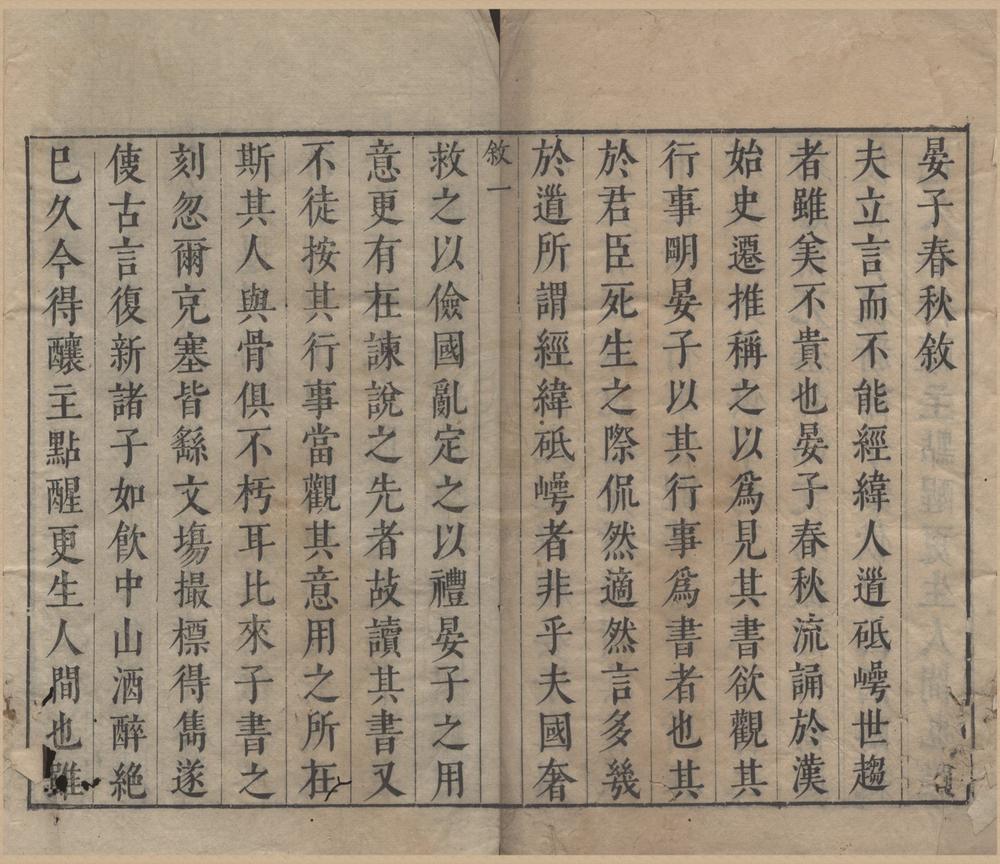 晏子春秋敘
夫立言而不能經緯人道砥嶀世趨
者雖美不貴也晏子春秋流誦於漢
始史遷推稱之以爲見其書欲觀其
行事明晏子以其行事爲書者也其
於君臣死生之際侃然適然言多幾
於道所謂經緯砥嶀者非乎夫國奢
敘一
救之以儉國亂定之以禮晏子之用
意更有在諫說之先者故讀其書又
不徒按其行事當觀其意用之所在
斯其人與骨俱不朽耳比來子書之
刻忽爾充塞皆繇文塲撮標得雋遂
使古言復新諸子如飲中山酒醉絕
已久今得釀主點醒更生人間也雖